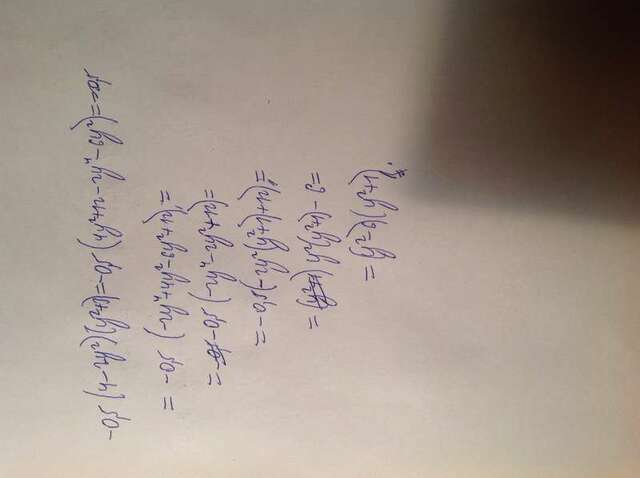 -0,5 (4-2y²)(y²+3)=-0,5 (4y²+12-2y⁴-6y²)=
= -0,5 (-2y⁴+4y²-6y²+12)=
= -0,5 (-2y⁴-2y²+12)=
=-0,5(-2y²(y²+1)+12)=
= y²(y²+1)-6=
=(y²-6)(y²+1)